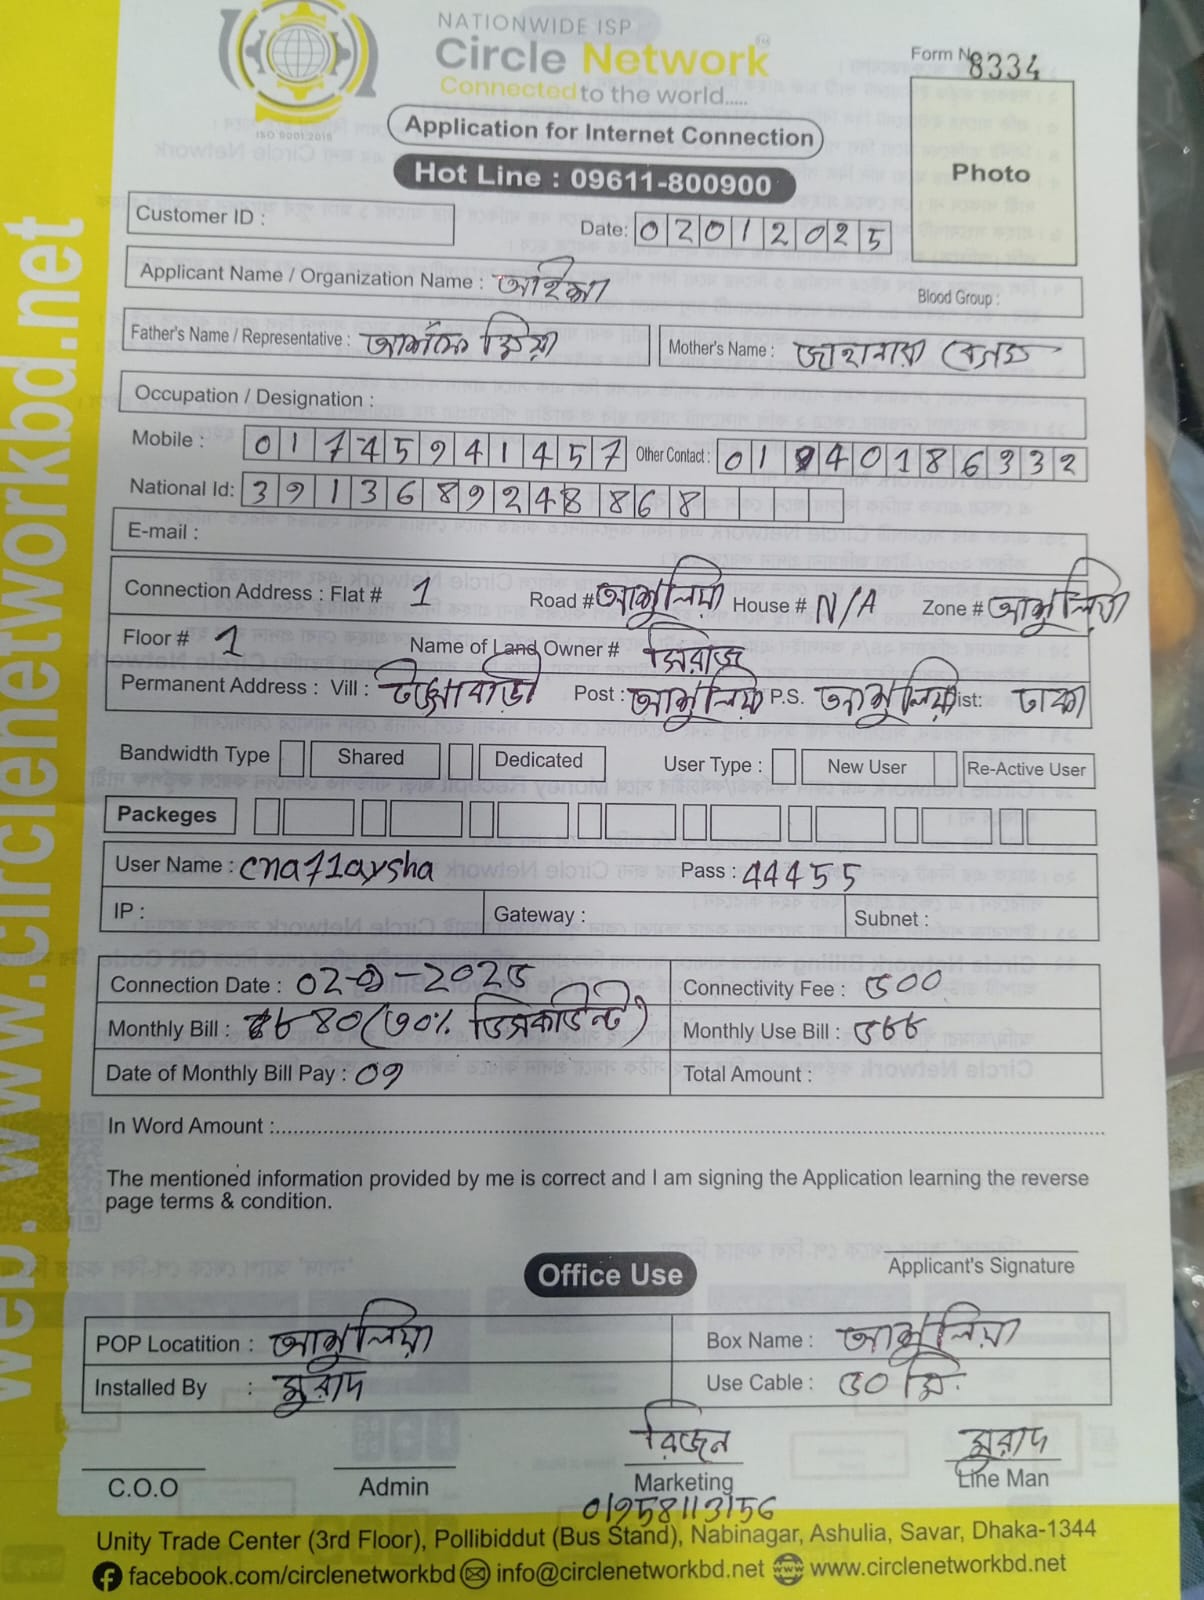 NATIONWIDE ISP
Circle Network
Connected to the world.....
ISO 9001:2015
Form No 8334
Application for Internet Connection
Hot Line : 09611-800900
Photo
Customer ID :
Date: 02012025
Applicant Name / Organization Name :
Blood Group :
Father's Name / Representative : মিয়া
Mother's Name : জাহানারা বেগম
Occupation / Designation :
Mobile : 01745941457 Other Contact : 01940186332
National Id: 3913689248868
E-mail :
Connection Address : Flat # 1 Road # আশুলিয়া House # N/A Zone # আশুলিয়া
Floor # 1 Name of Land Owner # সিরাজ
Permanent Address : Vill : Post : আশুলিয়া P.S. আশুলিয়া Dist: ঢাকা
Bandwidth Type Shared Dedicated User Type : New User Re-Active User
Packeges
User Name : cna71aysha Pass : 44455
IP : Gateway : Subnet :
Connection Date : 02-01-2025 Connectivity Fee : ৫০০
Monthly Bill : ডিসকাউন্ট) Monthly Use Bill : ৫৬৬
Date of Monthly Bill Pay : 09 Total Amount :
In Word Amount :
The mentioned information provided by me is correct and I am signing the Application learning the reverse
page terms & condition.
Applicant's Signature
Office Use
POP Locatition : আশুলিয়া Box Name : আশুলিয়া
Installed By : মুরাদ Use Cable : ৩০ মি.
রিজন মুরাদ
C.O.O Admin Marketing Line Man
01958113156
Unity Trade Center (3rd Floor), Pollibiddut (Bus Stand), Nabinagar, Ashulia, Savar, Dhaka-1344
facebook.com/circlenetworkbd info@circlenetworkbd.net www.circlenetworkbd.net
web: www.circlenetworkbd.net